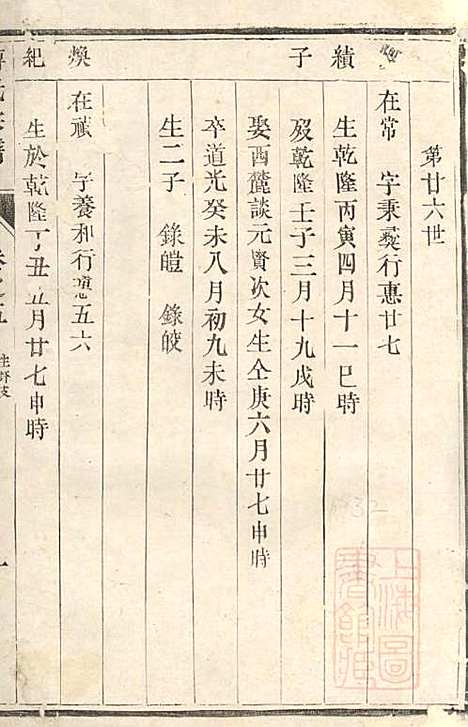 第廿六世
績
子
在常 字秉彝行惠廿七
生乾隆丙寅四月十一巳時
歿乾隆壬子三月十九戌時
娶西麓談元賢次女生仝庚六月廿七申時
卒道光癸未八月初九未時
生二子 錄皚 錄皎
煥
在祿 字養和行惠五六
紀
生於乾隆丁丑五月廿七申時
上海圖
書館藏